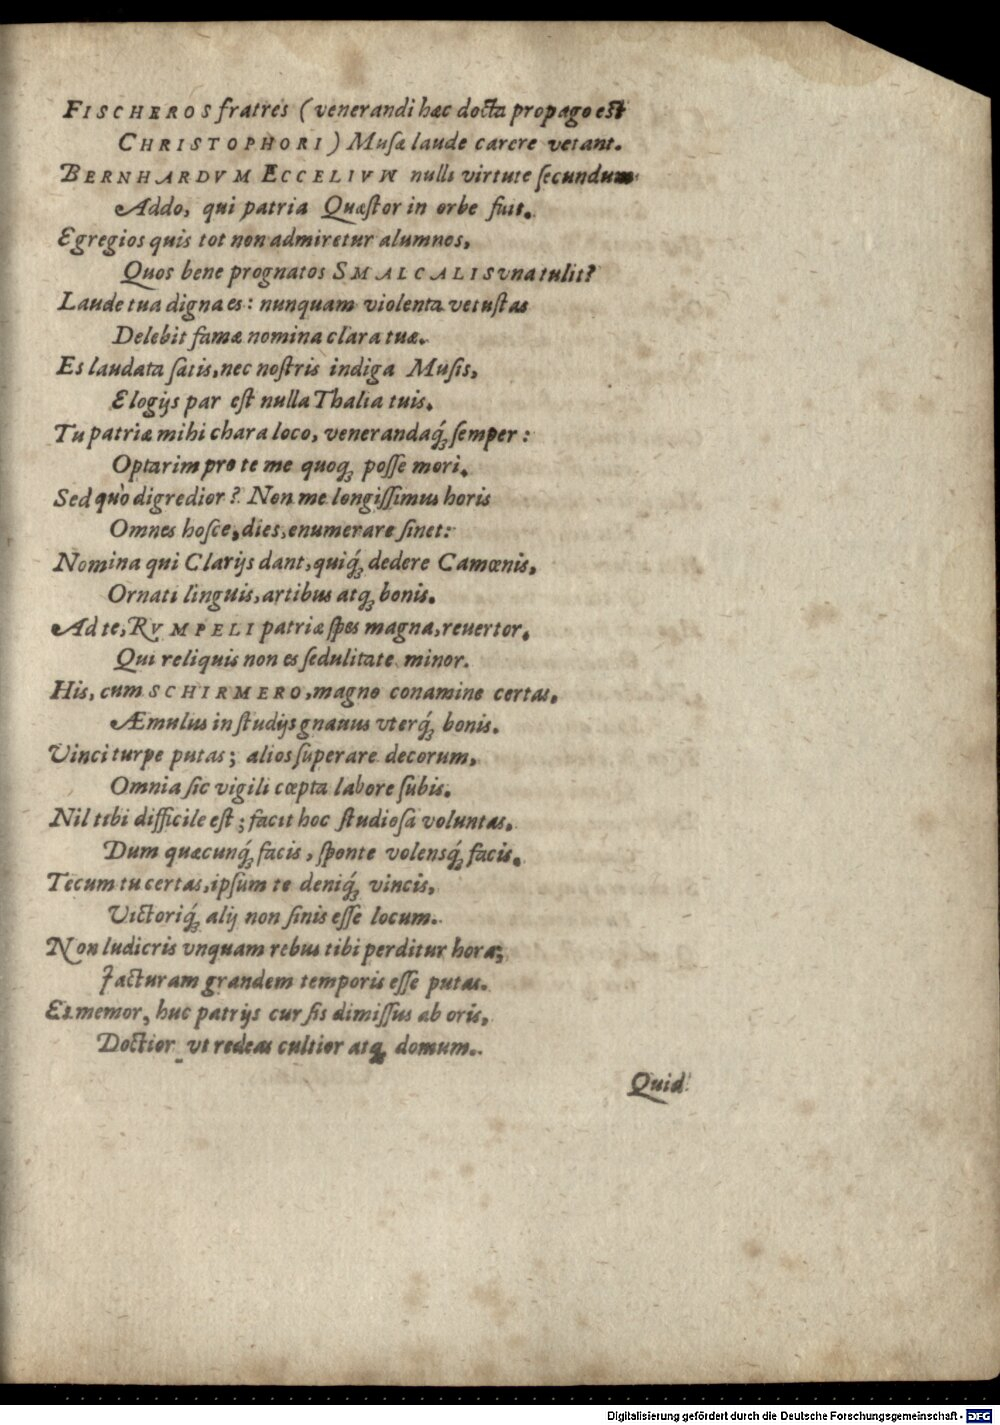 FISCHEROS fratres (venerandi hæc docta propago est
CHRISTOPHORI) Musæ laude carere vetant.
BERNHARDVM ECCELIVM nulli virtute secundum
Addo, qui patria Quæstor in orbe fuit.
Egregios quis tot non admiretur alumnos,
Quos bene prognatos SMALCALIS vna tulit?
Laude tua digna es: nunquam violenta vetustas
Delebit famæ nomina clara tuæ.
Es laudata satis, nec nostris indiga Musis,
Elogijs par est nulla Thalia tuis.
Tu patriæ mihi chara loco, venerandaq́ꝫ semper:
Optarim pro te me quoqꝫ posse mori.
Sed quò digredior? Non me longissimus horis
Omnes hosce, dies, enumerare sinet:
Nomina qui Clarijs dant, quiq́ꝫ dedere Camœnis,
Ornati linguis, artibus atqꝫ bonis.
Ad te, RVMPELI patriæ spes magna, reuertor,
Qui reliquis non es sedulitate minor.
His, cum SCHIRMERO, magno conamine certas,
Æmulus in studijs gnauus vterq́ꝫ bonis.
Vinci turpe putas; alios superare decorum,
Omnia sic vigili cœpta labore subis.
Nil tibi difficile est; facit hoc studiosa voluntas.
Dum quæcunq́ꝫ facis, sponte volensq́ꝫ facis.
Tecum tu certas, ipsum te deniq́ꝫ vincis,
Victoriq́ꝫ alij non sinis esse locum.
Non ludicris vnquam rebus tibi perditur hora;
Jacturam grandem temporis esse putas.
Es memor, huc patrijs cur sis dimissus ab oris,
Doctior vt redeas cultior atqꝫ domum.
Quid
Digitalisierung gefördert durch die Deutsche Forschungsgemeinschaft - DFG